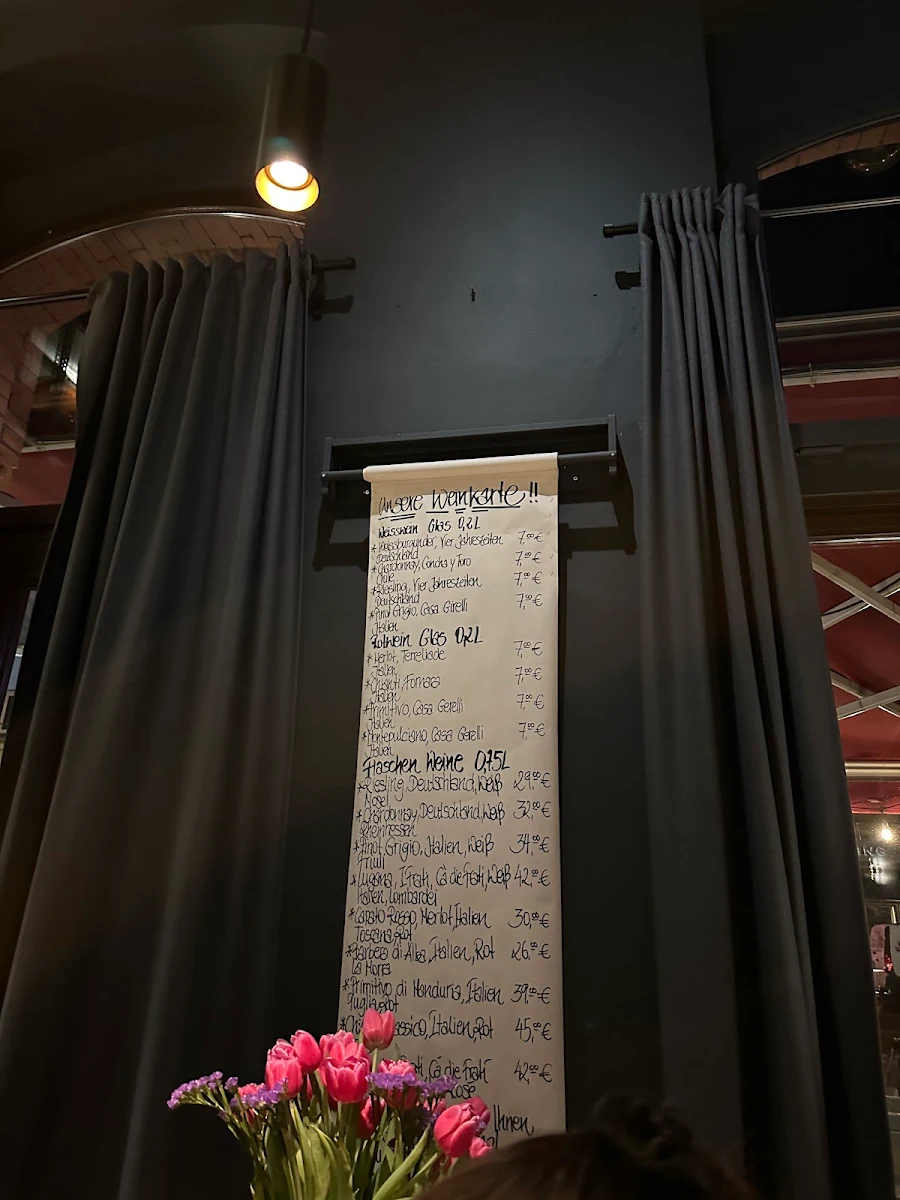 Unsere Weinkarte!!
Weisswein Glas 0,2L
*Weissburgunder, Vier Jahreszeiten 7,⁰⁰€
Deutschland
*Chardonnay, Concha y Toro 7,⁰⁰€
Chile
*Riesling, Vier Jahreszeiten 7,⁰⁰€
Deutschland
*Pinot Grigio, Casa Girelli 7,⁰⁰€
Italien
Rotwein Glas 0,2L
*Merlot, 7,⁰⁰€
Italien
*Chianti, Fornara 7,⁰⁰€
Italien
*Primitivo, Casa Gerelli 7,⁰⁰€
Italien
*Montepulciano, Casa Gerelli 7,⁰⁰€
Italien
Flaschen Weine 0,75L
*Riesling, Deutschland, Weiß 29,⁰⁰€
Mosel
*Chardonnay, Deutschland, Weiß 32,⁰⁰€
Rheinhessen
*Pinot Grigio, Italien, Weiß 34,⁰⁰€
Friuli
*Lugana, I Frati, Cà dei Frati, Weiß 42,⁰⁰€
Italien, Lombardei
Rosso, Merlot, Italien 30,⁰⁰€
Toscana, Rot
*Barbera di Alba, Italien, Rot 26,⁰⁰€
La Morra
*Primitivo di Manduria, Italien 39,⁰⁰€
Puglia, Rot
Italien, Rot 45,⁰⁰€
Cà dei Frati 42,⁰⁰€
Rose
Ihnen